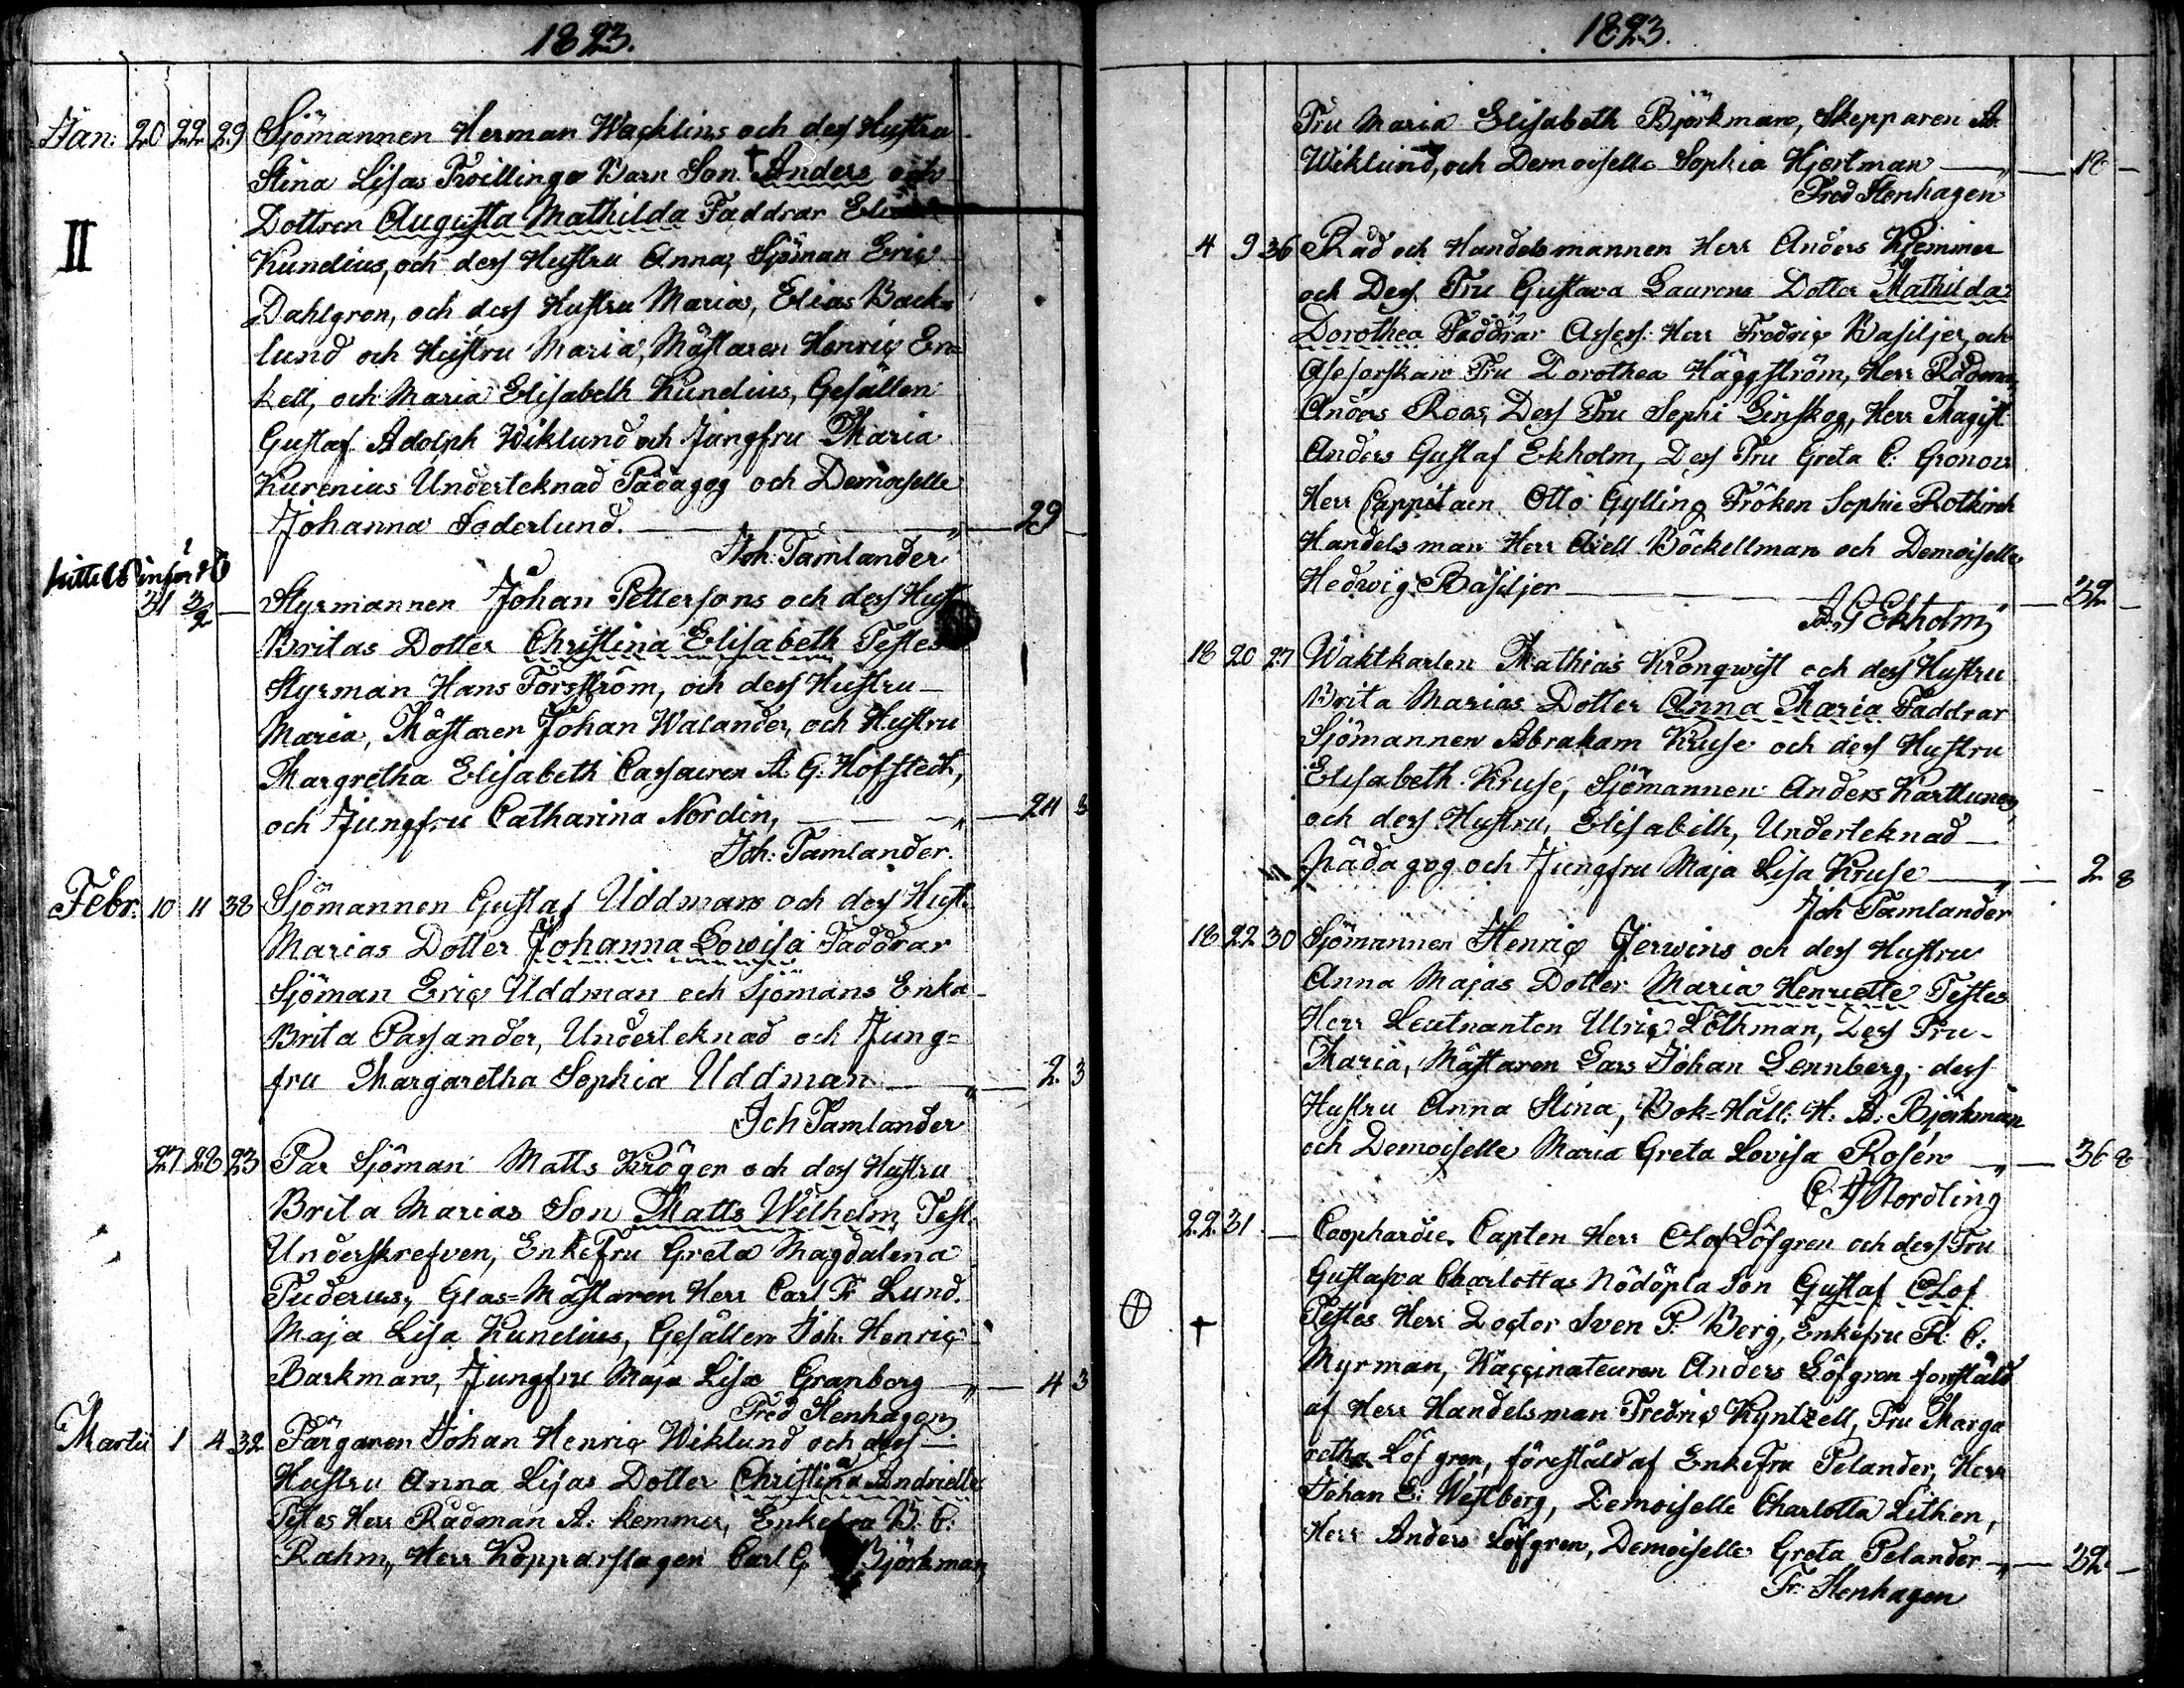 1823.
Jan: 20 22 29 Sjömannen Herman Wacklins och dess Hustru
Stina Lisas Twillinge Barn Son † Anders och
II Dottren Augusta Mathilda Faddrar Elias
Kundius, och dess Hustru Anna, Sjöman Eric
Dahlgren, och dess Hustru Maria, Elias Back=
lund och Hustru Maria, Mästaren Henric En=
kell, och Maria Elisabeth Kundius, Gesällen
Gustaf Adolph Wiklund och Jungfru Maria
Kurenius Underteknad Pädagog och Demoiselle
Johanna Söderlund. — „ — 29 —
Joh. Tamlander
införd
31 3/2 — Styrmannen Johan Pettersons och dess Hust
Britas Dotter Christina Elisabeth Testes
Styrman Hans Forsström, och dess Hustru
Maria, Mästaren Johan Walander, och Hustru
Margretha Elisabeth A. G. Hofstedt,
och Jungfru Catharina Nordin, — „ — 24 3
Joh: Tamlander.
Febr. 10 11 38 Sjömannen Gustaf Uddmans och dess Hust.
Marias Dotter Johanna Lovisa Faddrar
Sjöman Eric Uddman och Sjömans Enka
Brita Passander, Underteknad och Jung=
fru Margaretha Sophia Uddman — „ — 2 3
Joh Tamlander
27 28 23 Par Sjöman Matts Kröger och dess Hustru
Brita Marias Son Matts Wilhelm Test.
Underskrefven, Enkefru Greta Magdalena
Tuderus, Glas=Mästaren Herr Carl Fr Lund.
Maja Lisa Kundius, Gesällen Joh. Henric
Barkman, Jungfru Maja Lisa Granborg „ — 4 3
Fred Stenhagen
Martii 1 4 32 Färgaren Johan Henric Wiklund och dess
Hustru Anna Lisas Dotter Christina Andriette
Testes Herr Rådman A. Kemmer, Enkefru B. C.
Rahm, Herr Kopparslagen Carl G Björkman,
1823.
Fru Maria Elisabeth Björkman, Skepparen A.
Wiklund, och Demoiselle Sophia Hjertman — „ — 18 —
Fred Stenhagen
4 9 36 Råd och Handelsmannen Herr Anders Kemmer
och Dess Fru Gustava Laurens Dotter Mathilda
Dorothea Faddrar Assess. Herr Fredric Basiljer, och
Assessorskan Fru Dorothea Häggström, Herr Rådman
Anders Roos, Dess Fru Sophi Ginskog, Herr Magist.
Anders Gustaf Ekholm, Dess Fru Greta C: Gronow
Herr Cappitaen Otto Gylling Fröken Sophie Rotkirch
Handelsman Herr Axell Böckellman och Demoiselle
Hedwig Basiljer — „ — 32 —
A. G Ekholm
18 20 27 Waktkarlen Mathias Kronqwist och dess Hustru
Brita Marias Dotter Anna Maria Faddrar
Sjömannen Abraham Kruse och dess Hustru
Elisabeth Kruse, Sjömannen Anders Karttunen,
och dess Hustru, Elisabeth, Underteknad
pädagog och Jungfru Maja Lisa Kruse — „ — 2 8
Joh Tamlander
18 22 30 Sjömannen Henric Jerwins och dess Hustru
Anna Majas Dotter Maria Henriette Testes
Herr Leutnanten Ulric Löthman, Dess Fru
Maria, Mästaren Lars Johan Lennberg, dess
Hustru Anna Stina, Bok=Håll: H. A. Björkman
och Demoiselle Maria Greta Lovisa Rosén — „ — 36 8
C J Nordling
22 31 — Coophardie Capten Herr Olof Löfgren och dess Fru
Gustafva Charlottas Nödöpta Son Gustaf Olof
† Testes Herr Doctor Sven P. Berg, Enkefru R: C:
Myrman, Waccinateuren Anders Löfgren forestäld
af Herr Handelsman Fredric Kyntzell, Fru Marga
retha Löfgren, förestäld af Enkefru Pelander, Herr
Johan E: Westberg, Demoiselle Charlotta Lithen,
Herr Anders Löfgren, Demoiselle Greta Pelander „ — 32 —
Fr: Stenhagen